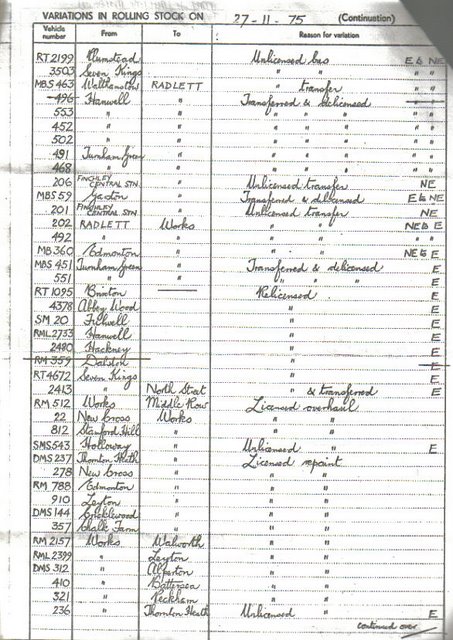 VARIATIONS IN ROLLING STOCK ON 27-11-75 (Continuation)
Vehicle number From To Reason for variation
RT 2199 Plumstead Unlicensed bus E & NE
3503 Seven Kings " " " "
MBS 463 Walthamstow RADLETT " transfer " "
496 Hanwell " Transferred & delicensed
553 " " " " " " "
452 " " " " " " "
502 " " " " " " "
491 Turnham Green " " " " " "
468 " " " " " " "
206 FINCHLEY CENTRAL STN. " Unlicensed transfer NE
MBS 59 Garston " Transferred & delicensed E & NE
201 FINCHLEY CENTRAL STN. " Unlicensed transfer NE
202 RADLETT Works " " NE & E
492 " " " " " "
MB 360 Edmonton " " " NE & E
MBS 451 Turnham Green " Transferred & delicensed E
551 " " " " " E
RT 1095 Brixton — Relicensed E
4378 Abbey Wood " E
SM 20 Fulwell " E
RML 2733 Hanwell " E
2480 Hackney " E
RM 359 Dalston " E
RT 4672 Seven Kings " E
2413 " North Street " & transferred E
RM 512 Works Middle Row Licensed overhaul
22 New Cross Works " "
812 Stamford Hill " " "
SMS 543 Holloway " Unlicensed " E
DMS 237 Thornton Heath " Licensed repaint
278 New Cross " " "
RM 788 Edmonton " " "
910 Leyton " " "
DMS 144 Cricklewood " " "
357 Chalk Farm " " "
RM 2157 Works Walworth " "
RML 2399 " Leyton " "
DMS 312 " Alperton " "
410 " Battersea " "
321 " Peckham " "
236 " Thornton Heath Unlicensed " E
continued over